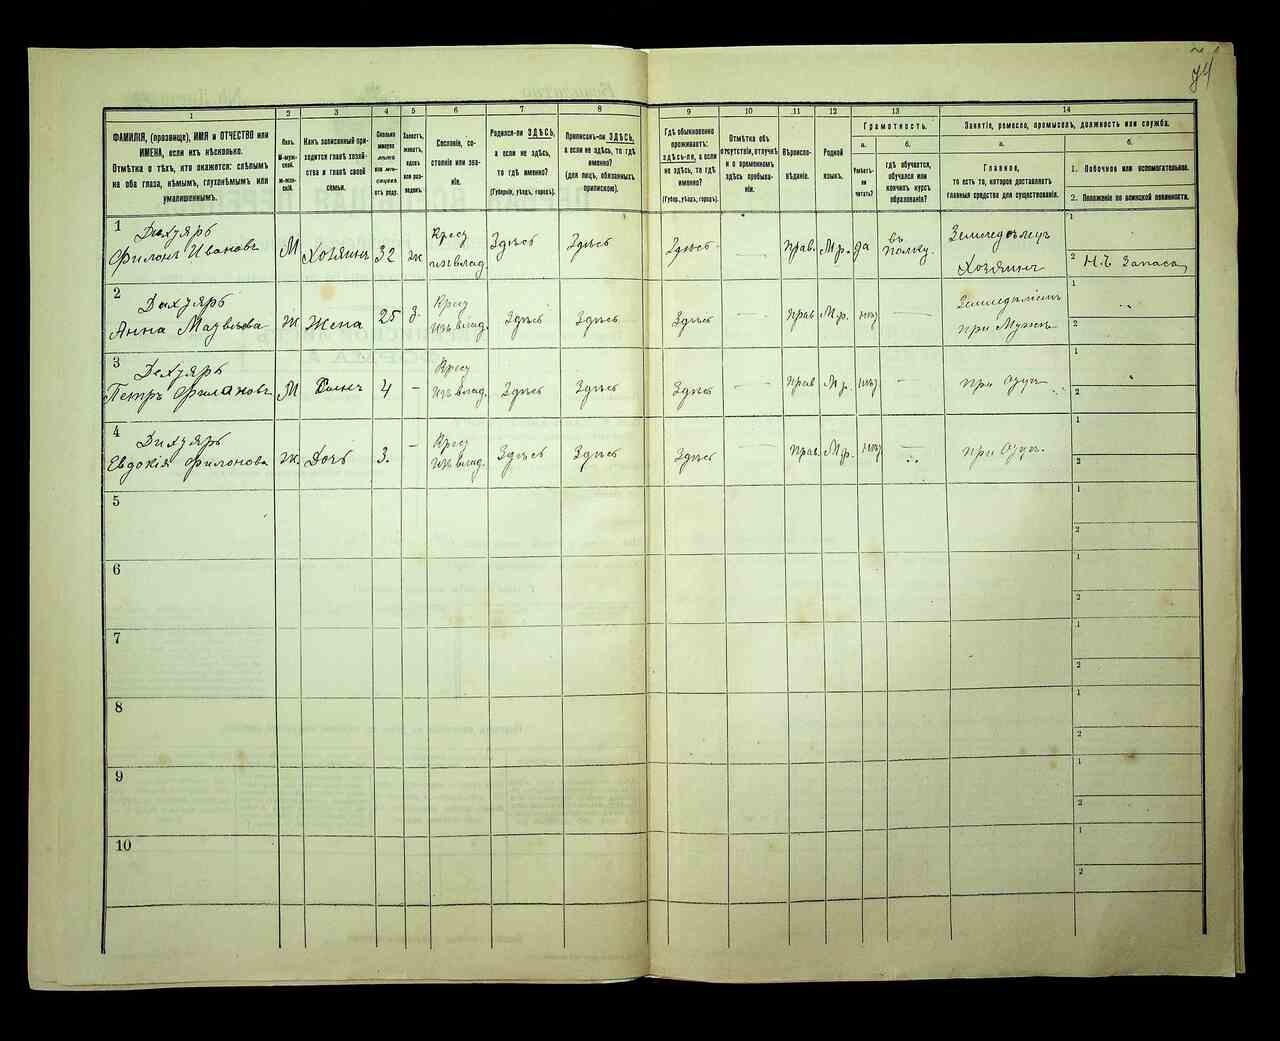 74
1
2
3
4
5
6
7
8
9
10
11
12
13
14
ФАМИЛІЯ, (прозвище), ИМЯ и ОТЧЕСТВО или
ИМЕНА, если ихъ нѣсколько.
Отмѣтка о тѣхъ, кто окажется: слѣпымъ
на оба глаза, нѣмымъ, глухонѣмымъ или
умалишеннымъ.
Полъ.
М-муж-
ской.
Ж-жен-
скій.
Какъ записанный при-
ходится главѣ хозяй-
ства и главѣ своей
семьи.
Сколько
минуло
лѣтъ
или мѣ-
сяцевъ
отъ роду.
Холостъ,
женатъ,
вдовъ
или раз-
веденъ.
Сословіе, со-
стояніе или зва-
ніе.
Родился-ли ЗДѢСЬ,
а если не здѣсь,
то гдѣ именно?
(Губернія, уѣздъ, городъ).
Приписанъ-ли ЗДѢСЬ,
а если не здѣсь, то гдѣ
именно?
(для лицъ, обязанныхъ
припискою).
Гдѣ обыкновенно
проживаетъ:
здѣсь-ли, а если
не здѣсь, то гдѣ
именно?
(Губер.,уѣздъ, городъ).
Отмѣтка объ
отсутствіи, отлучкѣ
и о временномъ
здѣсь пребыва-
ніи.
Вѣроиспо-
вѣданіе.
Родной
языкъ.
Грамотность.
а.
б.
Умѣетъ-
ли
читать?
гдѣ обучается,
обучался или
кончилъ курсъ
образованія?
Занятіе, ремесло, промыселъ, должность или служба.
а.
б.
Главное,
то есть то, которое доставляетъ
главныя средства для существованія.
1. Побочное или вспомогательное.
2. Положеніе по воинской повинности.
1
Дихтярь
Филонъ Ивановъ
М
Хозяинъ
32
ж
Крест
изъ влад.
Здѣсь
Здѣсь
Здѣсь
—
Прав.
М.р.
да
въ
полку.
Земледѣлецъ
Хозяинъ
1
2 Н.Ч. Запаса
2
Дихтярь
Анна
Ж
Жена
25
з.
Крест
изъ влад.
Здѣсь
Здѣсь
Здѣсь
—
Прав
М.р.
нѣт
—
при Мужѣ
1
2
3
Дихтярь
Петръ Филоновъ
М
Сынъ
4
—
Крест
изъ влад.
Здѣсь
Здѣсь
Здѣсь
—
Прав
М.р.
нѣт
—
при Отцѣ
1
2
4
Дихтярь
Евдокія Филонова
Ж.
Дочь
3.
—
Крест
изъ влад.
Здѣсь
Здѣсь
Здѣсь
—
Прав.
М.р.
нѣт
—
при Отцѣ.
1
2
5
1
2
6
1
2
7
1
2
8
1
2
9
1
2
10
1
2